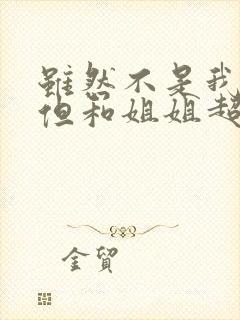 雖然不是我
但和姐姐超
金贸